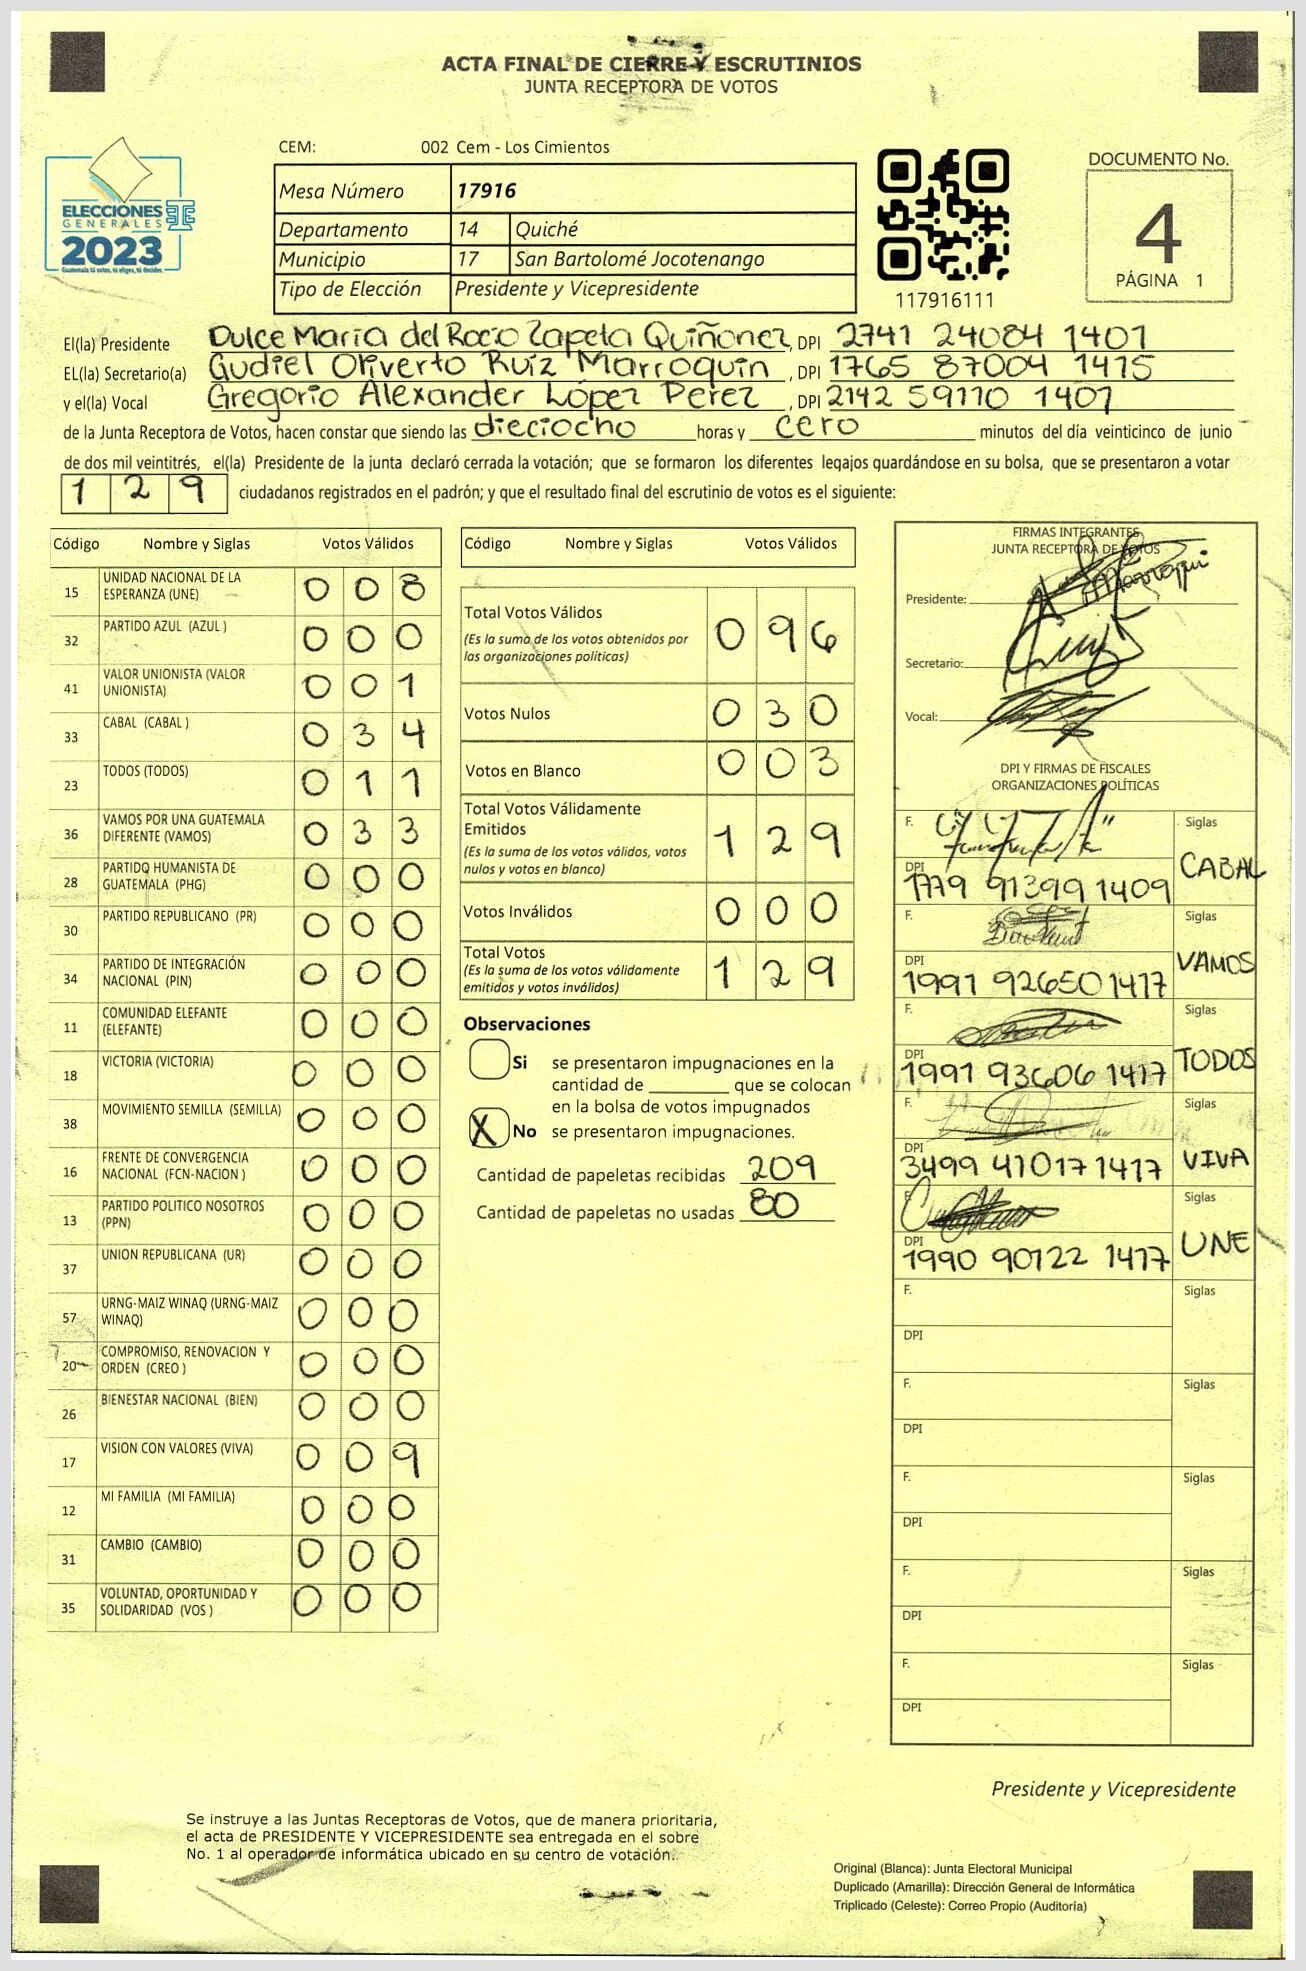 ACTA FINAL DE CIERRE Y ESCRUTINIOS
JUNTA RECEPTORA DE VOTOS
CEM: 002 Cem - Los Cimientos
DOCUMENTO No.
4
PÁGINA 1
ELECCIONES
GENERALES
2023
Guatemala tú votas, tú eliges, tú decides.
Mesa Número 17916
Departamento 14 Quiché
Municipio 17 San Bartolomé Jocotenango
Tipo de Elección Presidente y Vicepresidente
117916111
El(la) Presidente Dulce María del Rocio Zapeta Quiñonez, DPI 2741 24084 1401
EL(la) Secretario(a) Gudiel Oliverto Ruíz Marroquín, DPI 1765 87004 1415
y el(la) Vocal Gregorio Alexander López Perez, DPI 2142 59170 1407
de la Junta Receptora de Votos, hacen constar que siendo las dieciocho horas y cero minutos del día veinticinco de junio
de dos mil veintitrés, el(la) Presidente de la junta declaró cerrada la votación; que se formaron los diferentes legajos guardándose en su bolsa, que se presentaron a votar
1 2 9 ciudadanos registrados en el padrón; y que el resultado final del escrutinio de votos es el siguiente:
Código Nombre y Siglas Votos Válidos
15 UNIDAD NACIONAL DE LA ESPERANZA (UNE) 0 0 8
32 PARTIDO AZUL (AZUL ) 0 0 0
41 VALOR UNIONISTA (VALOR UNIONISTA) 0 0 1
33 CABAL (CABAL ) 0 3 4
23 TODOS (TODOS) 0 1 1
36 VAMOS POR UNA GUATEMALA DIFERENTE (VAMOS) 0 3 3
28 PARTIDO HUMANISTA DE GUATEMALA (PHG) 0 0 0
30 PARTIDO REPUBLICANO (PR) 0 0 0
34 PARTIDO DE INTEGRACIÓN NACIONAL (PIN) 0 0 0
11 COMUNIDAD ELEFANTE (ELEFANTE) 0 0 0
18 VICTORIA (VICTORIA) 0 0 0
38 MOVIMIENTO SEMILLA (SEMILLA) 0 0 0
16 FRENTE DE CONVERGENCIA NACIONAL (FCN-NACION ) 0 0 0
13 PARTIDO POLITICO NOSOTROS (PPN) 0 0 0
37 UNION REPUBLICANA (UR) 0 0 0
57 URNG-MAIZ WINAQ (URNG-MAIZ WINAQ) 0 0 0
20 COMPROMISO, RENOVACION Y ORDEN (CREO ) 0 0 0
26 BIENESTAR NACIONAL (BIEN) 0 0 0
17 VISION CON VALORES (VIVA) 0 0 9
12 MI FAMILIA (MI FAMILIA) 0 0 0
31 CAMBIO (CAMBIO) 0 0 0
35 VOLUNTAD, OPORTUNIDAD Y SOLIDARIDAD (VOS ) 0 0 0
Código Nombre y Siglas Votos Válidos
Total Votos Válidos 0 9 6
(Es la suma de los votos obtenidos por
las organizaciones políticas)
Votos Nulos 0 3 0
Votos en Blanco 0 0 3
Total Votos Válidamente
Emitidos 1 2 9
(Es la suma de los votos válidos, votos
nulos y votos en blanco)
Votos Inválidos 0 0 0
Total Votos 1 2 9
(Es la suma de los votos válidamente
emitidos y votos inválidos)
Observaciones
Si se presentaron impugnaciones en la
cantidad de ________ que se colocan
en la bolsa de votos impugnados
X No se presentaron impugnaciones.
Cantidad de papeletas recibidas 209
Cantidad de papeletas no usadas 80
FIRMAS INTEGRANTES
JUNTA RECEPTORA DE VOTOS
Presidente:
Secretario:
Vocal:
DPI Y FIRMAS DE FISCALES
ORGANIZACIONES POLÍTICAS
F. Siglas
DPI 1779 91399 1409 CABAL
F. Siglas
DPI 1991 92650 1417 VAMOS
F. Siglas
DPI 1991 93606 1417 TODOS
F. Siglas
DPI 3499 41017 1417 VIVA
F. Siglas
DPI 1990 90122 1417 UNE
F. Siglas
DPI
F. Siglas
DPI
F. Siglas
DPI
F. Siglas
DPI
F. Siglas
DPI
Presidente y Vicepresidente
Se instruye a las Juntas Receptoras de Votos, que de manera prioritaria,
el acta de PRESIDENTE Y VICEPRESIDENTE sea entregada en el sobre
No. 1 al operador de informática ubicado en su centro de votación.
Original (Blanca): Junta Electoral Municipal
Duplicado (Amarilla): Dirección General de Informática
Triplicado (Celeste): Correo Propio (Auditoría)